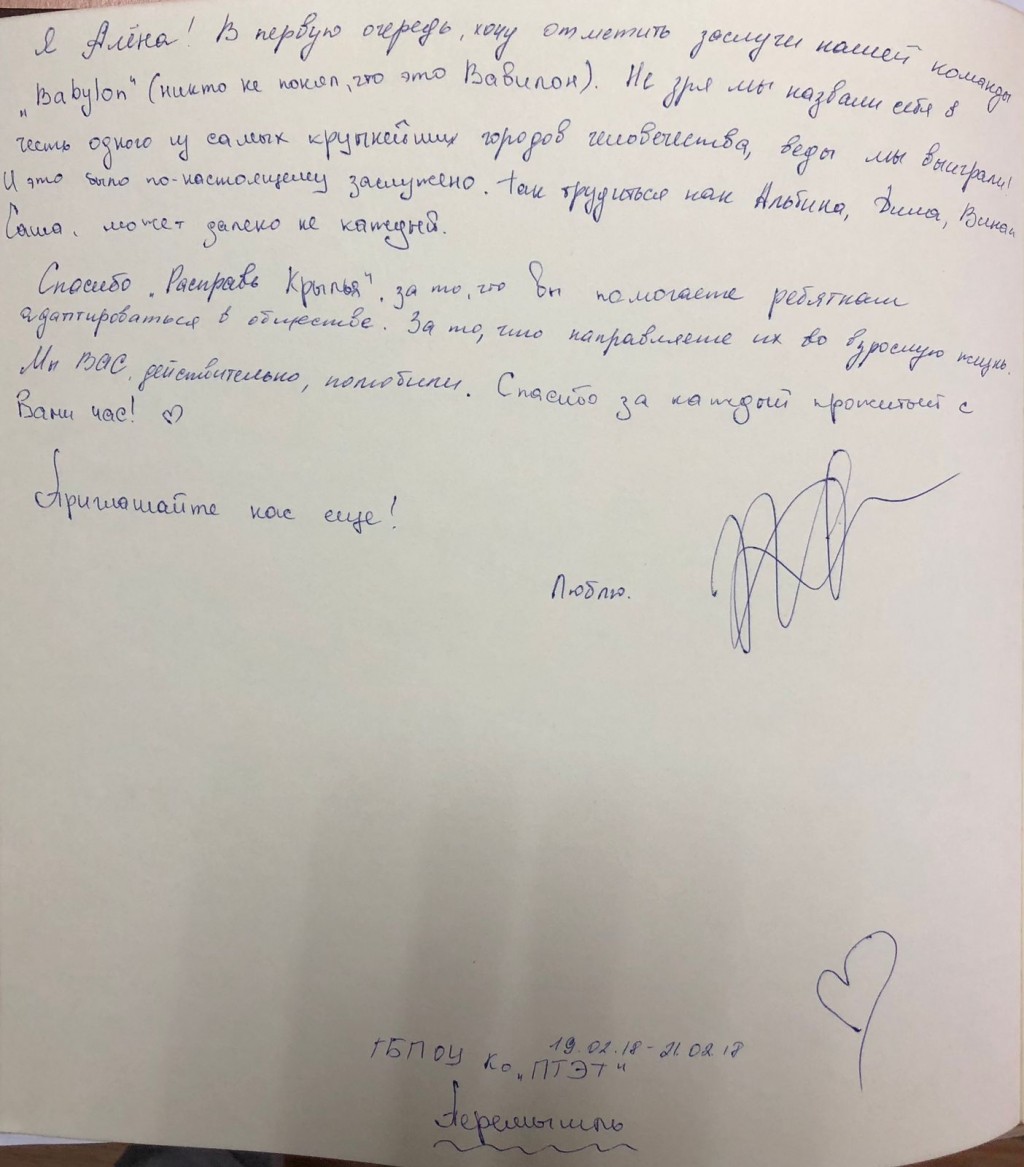 Я Алёна! В первую очередь, хочу отметить заслуги нашей команды
„Babylon" (никто не понял, что это Вавилон). Не зря мы назвали себя в
честь одного из самых крупнейших городов человечества, ведь мы выиграли!
И это было по-настоящему заслужено. Так трудиться как Альбина, Дима,
Саша, может далеко не каждый.
Спасибо „Расправь Крылья", за то, что Вы помогаете ребяткам
адаптироваться в обществе. За то, что направляете их во взрослую жизнь.
Мы ВАС, действительно, полюбили. Спасибо за каждый прожитый с
Вами час! ♡
Приглашайте нас еще!
Люблю.
ГБПОУ КО „ПТЭТ" 19.02.18-21.02.18
Перемышль